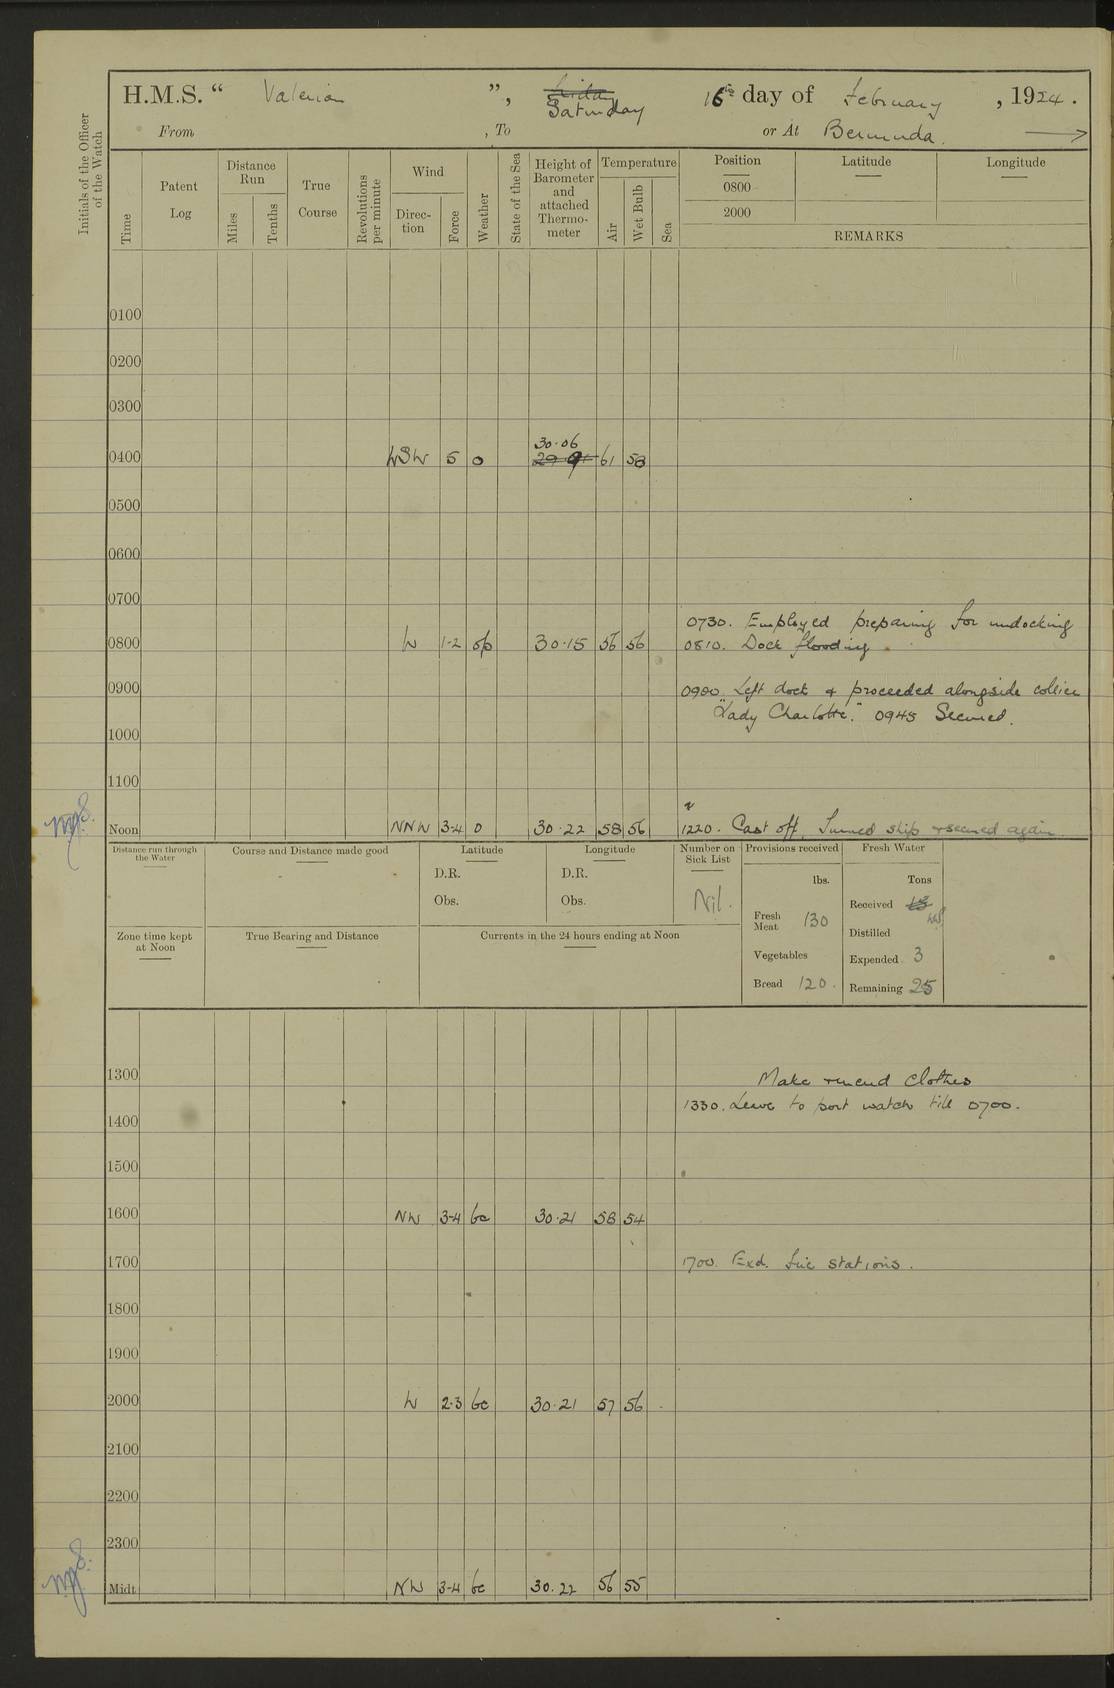 H.M.S. " Valerian ", Friday Saturday 16th day of February, 1924.
From , To or At Bermuda.
Initials of the Officer of the Watch
Time
Patent Log
Distance Run
Miles
Tenths
True Course
Revolutions per minute
Wind
Direction
Force
Weather
State of the Sea
Height of Barometer and attached Thermometer
Temperature
Air
Wet Bulb
Sea
Position Latitude Longitude
0800
2000
REMARKS
0100
0200
0300
30.06
0400 WSW 5 o 29.91 61 58
0500
0600
0700
0730. Employed preparing for undocking
0800 W 1-2 op 30.15 56 56 0810. Dock flooding.
0900 0900. Left dock & proceeded alongside collier
"Lady Charlotte." 0945 Secured.
1000
1100
Noon NNW 3-4 o 30.22 58 56 1220. Cast off. Turned ship & secured again
Distance run through the Water
Course and Distance made good
Latitude
D.R.
Obs.
Longitude
D.R.
Obs.
Number on Sick List
Nil.
Provisions received
lbs.
Fresh Meat 130
Vegetables
Bread 120.
Fresh Water
Tons
Received
Distilled
Expended 3
Remaining 25
Zone time kept at Noon
True Bearing and Distance
Currents in the 24 hours ending at Noon
1300 Make & mend clothes
1330. Leave to port watch till 0700.
1400
1500
1600 NW 3-4 bc 30.21 58 54
1700 1700. Exd. fire stations.
1800
1900
2000 W 2-3 bc 30.21 57 56
2100
2200
2300
Midt. NW 3-4 bc 30.22 56 55